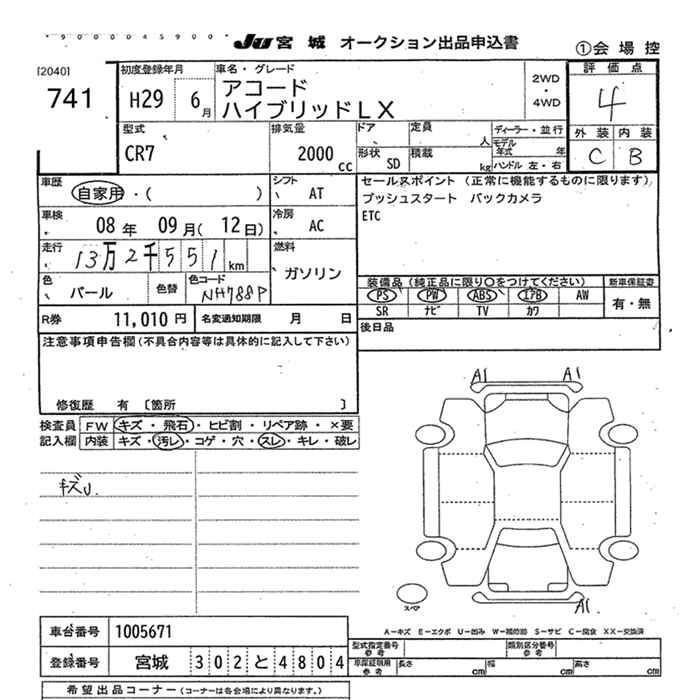 JU宮城 オークション出品申込書
①会場控
[2040]
741
初度登録年月
H29 6月
車名・グレード
アコード
ハイブリッドLX
2WD
・
4WD
評価点
4
外装 内装
C B
型式
CR7
排気量
2000cc
ドア
定員 人
形状 SD
積載 kg
ディーラー・並行
モデル年式 年
ハンドル 左・右
車歴 自家用・( )
シフト AT
セールスポイント (正常に機能するものに限ります)
プッシュスタート バックカメラ
ETC
車検 08年 09月( 12日)
冷房 AC
走行 13万2千551km
燃料 ガソリン
色 パール
色替
色コード NH788P
装備品 (純正品に限り○をつけてください)
新車保証書
PS PW ABS エアB AW
SR ナビ TV カワ
有・無
R券 11,010円
名変通知期限 月 日
後日品
注意事項申告欄(不具合内容等は具体的に記入して下さい)
修復歴 有 [箇所 ]
検査員記入欄
FW キズ・飛石・ヒビ割・リペア跡・×要
内装 キズ・汚レ・コゲ・穴・スレ・キレ・破レ
キズU.
A1 A1
A1
スペア
A-キズ E-エクボ U-凹み W-補修跡 S-サビ C-腐食 XX-交換済
車台番号 1005671
型式指定番号 参考
類別区分番号 参考
登録番号 宮城 302と4804
車庫証明用参考 長さ cm 幅 cm 高さ cm
希望出品コーナー(コーナーは各会場により異なります。)